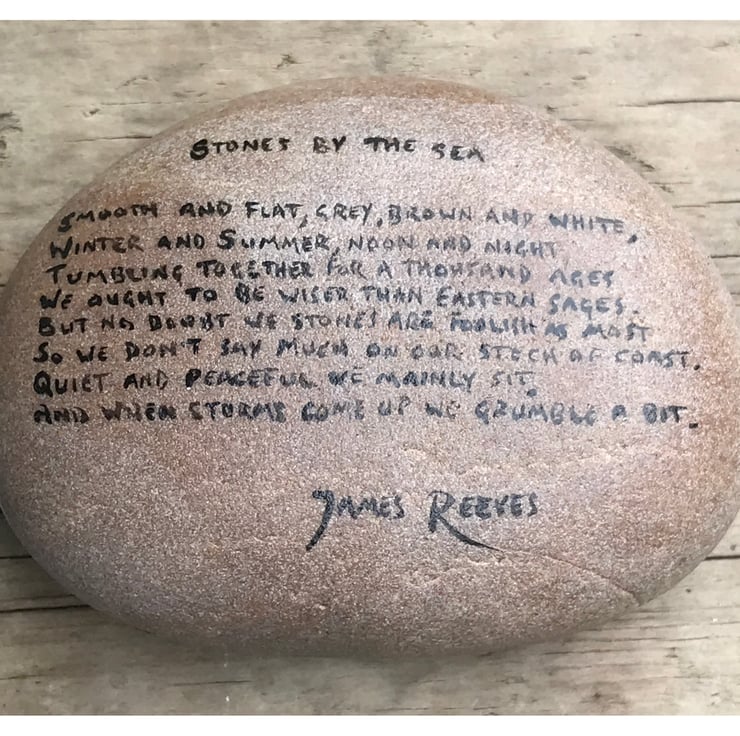 STONES BY THE SEA
SMOOTH AND FLAT, GREY, BROWN AND WHITE,
WINTER AND SUMMER, NOON AND NIGHT,
TUMBLING TOGETHER FOR A THOUSAND AGES
WE OUGHT TO BE WISER THAN EASTERN SAGES.
BUT NO DOUBT WE STONES ARE FOOLISH AS MOST
SO WE DON'T SAY MUCH ON OUR STECH OF COAST.
QUIET AND PEACEFUL WE MAINLY SIT,
AND WHEN STORMS COME UP WE GRUMBLE A BIT.
JAMES REEVES